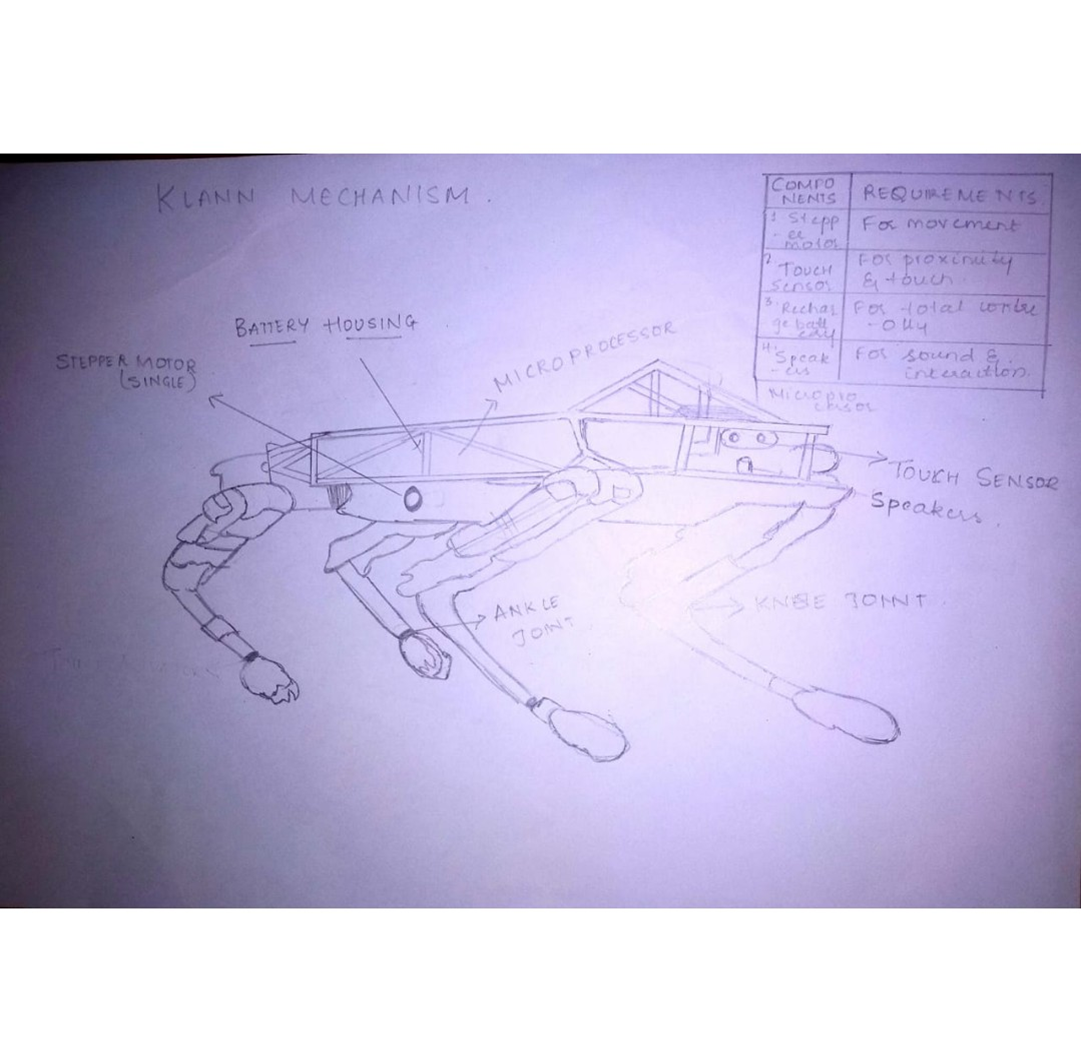 KLANN MECHANISM.
COMPO
NENTS
REQUIREMENTS.
1. Stepp
-er
motor
For movement
2. Touch
Sensor
For proximity
& touch
3. Rechar
ge batt
ery
For total
- olly
4. Speak
-ers
For sound &
interaction.
Micropro
BATTERY HOUSING
STEPPER MOTOR
(SINGLE)
MICROPROCESSOR
TOUCH SENSOR
Speakers.
ANKLE
JOINT
KNEE JOINT